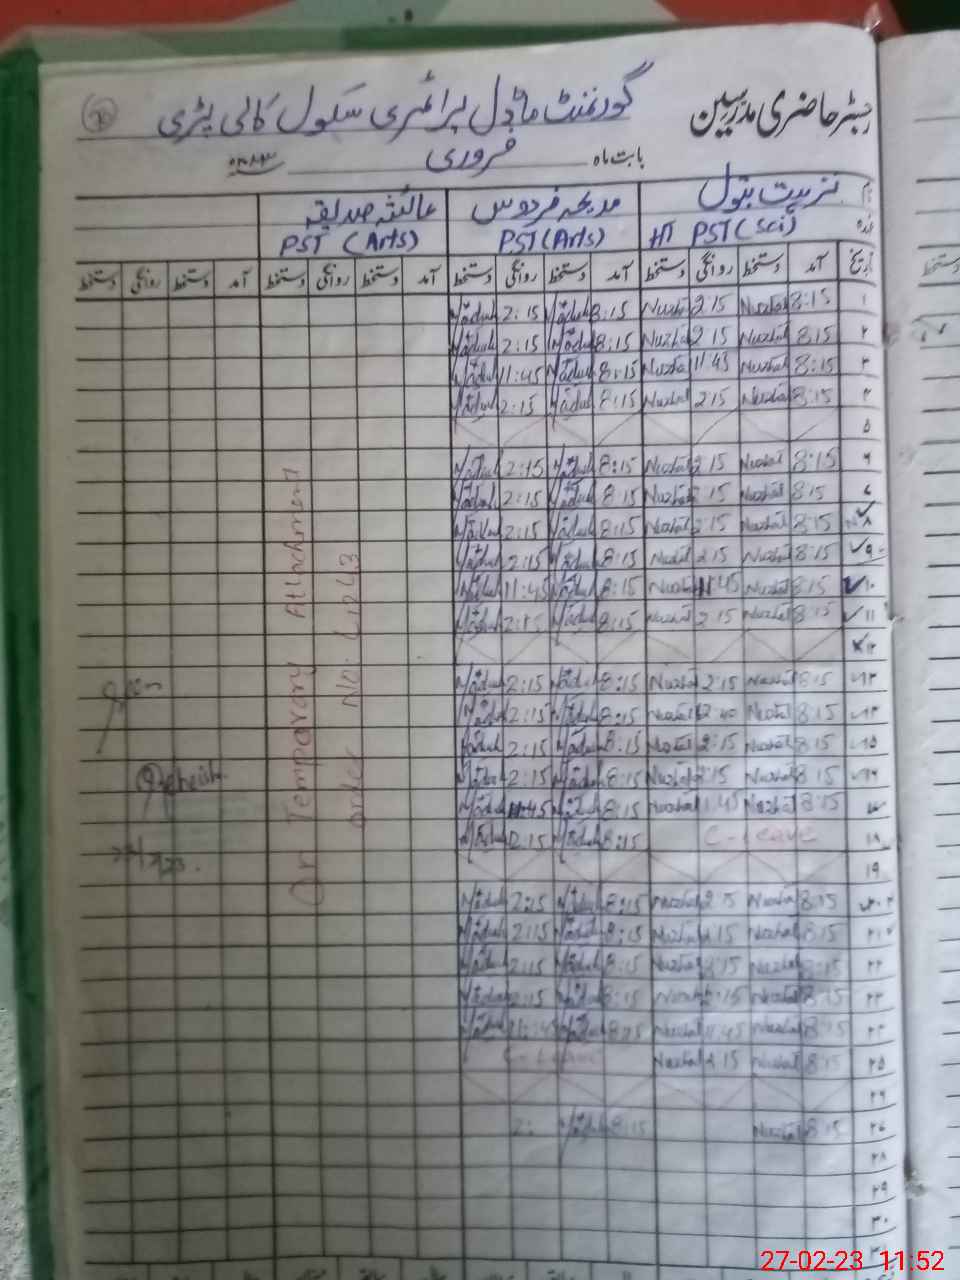 رجسٹر حاضری مدرسین
گورنمنٹ ماڈل پرائمری سکول کالی پٹری
بابت ماہ فروری
نزہت بتول مدیحہ فردوس عائشہ صدیقہ
HT PST (Sci) PST (Arts) PST (Arts)
تاریخ آمد دستخط روانگی دستخط آمد دستخط روانگی دستخط آمد دستخط روانگی دستخط آمد دستخط روانگی دستخط
۱ 8:15 Nuzhat 2:15 Nuzhat 8:15 Madiah 2:15 Madiah
۲ 8:15 Nuzhat 2:15 Nuzhat 8:15 Madiah 2:15 Madiah
۳ 8:15 Nuzhat 11:45 Nuzhat 8:15 Madiah 11:45 Madiah
۴ 8:15 Nuzhat 2:15 Nuzhat 8:15 Madiah 2:15 Madiah
۵
۶ 8:15 Nuzhat 2:15 Nuzhat 8:15 Madiah 2:15 Madiah
۷ 8:15 Nuzhat 2:15 Nuzhat 8:15 Madiah 2:15 Madiah
۸ 8:15 Nuzhat 2:15 Nuzhat 8:15 Madiah 2:15 Madiah
۹ 8:15 Nuzhat 2:15 Nuzhat 8:15 Madiah 2:15 Madiah
۱۰ 8:15 Nuzhat 11:45 Nuzhat 8:15 Madiah 11:45 Madiah
۱۱ 8:15 Nuzhat 2:15 Nuzhat 8:15 Madiah 2:15 Madiah
۱۲
۱۳ 8:15 Nuzhat 2:15 Nuzhat 8:15 Madiah 2:15 Madiah
۱۴ 8:15 Nuzhat 2:40 Nuzhat 8:15 Madiah 2:15 Madiah
۱۵ 8:15 Nuzhat 2:15 Nuzhat 8:15 Madiah 2:15 Madiah
۱۶ 8:15 Nuzhat 2:15 Nuzhat 8:15 Madiah 2:15 Madiah
۱۷ 8:15 Nuzhat 11:45 Nuzhat 8:15 Madiah 11:45 Madiah
۱۸ C-leave 8:15 Madiah 2:15 Madiah
۱۹
۲۰ 8:15 Nuzhat 2:15 Nuzhat 8:15 Madiah 2:15 Madiah
۲۱ 8:15 Nuzhat 2:15 Nuzhat 8:15 Madiah 2:15 Madiah
۲۲ 8:15 Nuzhat 2:15 Nuzhat 8:15 Madiah 2:15 Madiah
۲۳ 8:15 Nuzhat 2:15 Nuzhat 8:15 Madiah 2:15 Madiah
۲۴ 8:15 Nuzhat 11:45 Nuzhat 8:15 Madiah 11:45 Madiah
۲۵ 8:15 Nuzhat 2:15 Nuzhat C-Leave
۲۶
۲۷ 8:15 Nuzhat 8:15 Madiah 2:
۲۸
۲۹
۳۰
۳۱
On Temporary Attachment
order No:
27-02-23 11:52